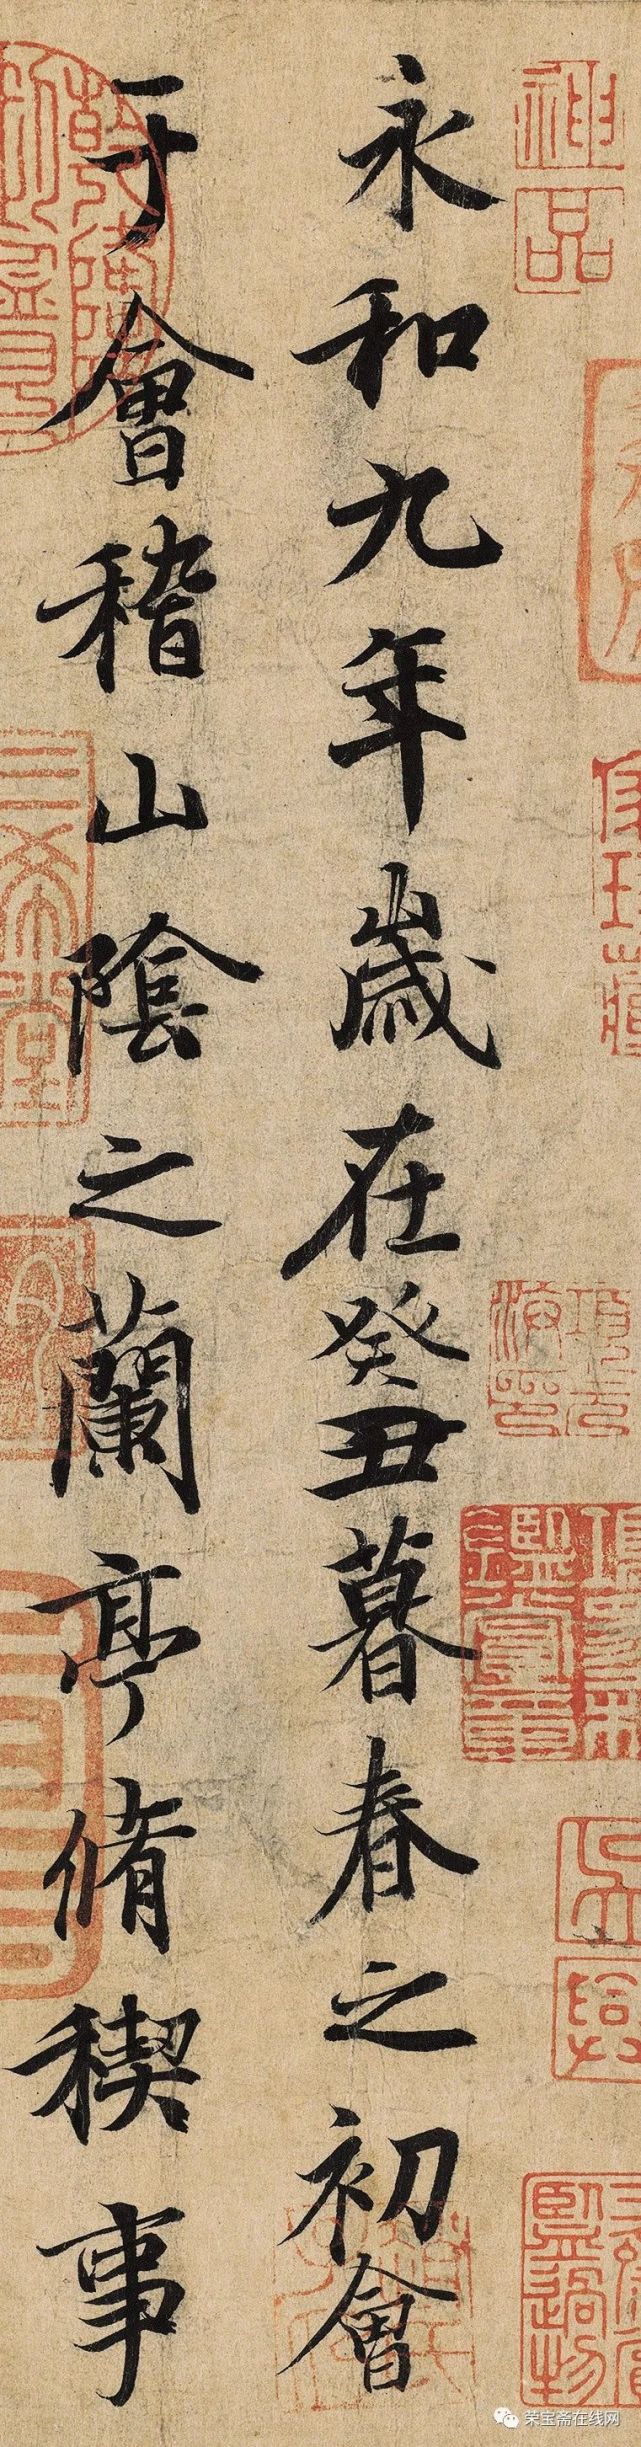 永和九年歲在癸丑暮春之初會
于會稽山陰之蘭亭脩稧事
神品
三希堂
荣宝斋在线网